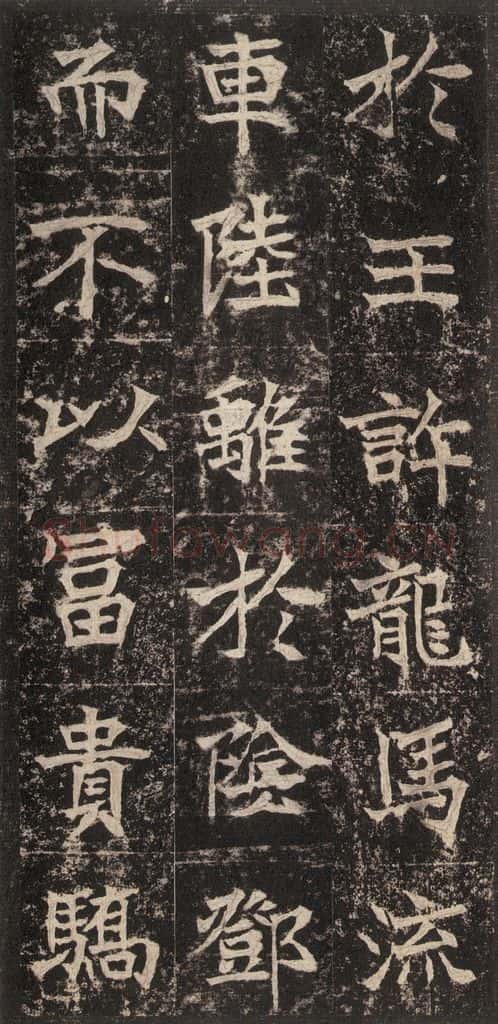 於王許龍馬流
車陸離於陰鄧
而不以富貴驕
Shufawang.CN